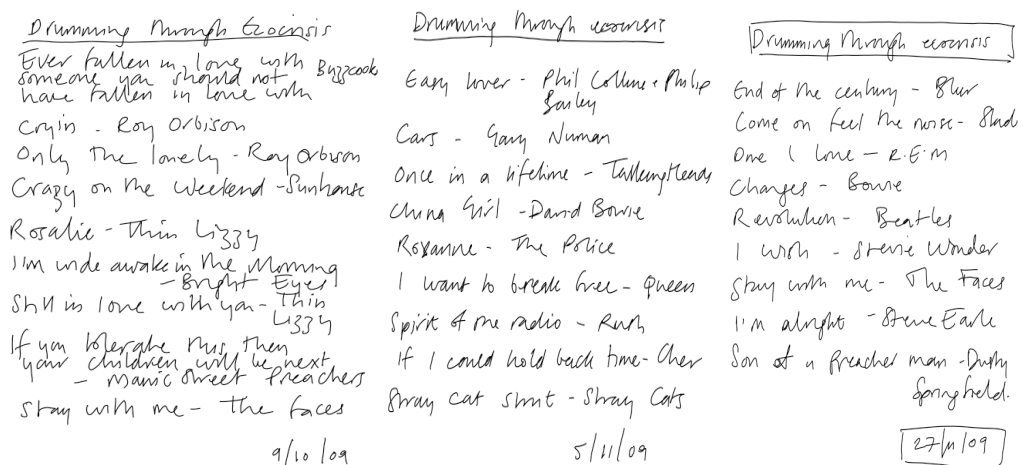 Drumming through Ecocrisis
Ever fallen in love with
someone you should not
have fallen in love with
Buzzcocks
Cryin - Roy Orbison
Only the lonely - Roy Orbison
Crazy on the weekend - Sunhouse
Rosalie - Thin Lizzy
I'm wide awake in the Morning
- Bright Eyes
Still in love with you - Thin
Lizzy
If you tolerate this then
your children will be next
- Manic Street Preachers
Stay with me - The Faces
9/10/09
Drumming through ecocrisis
Easy lover - Phil Collins + Philip
Bailey
Cars - Gary Numan
Once in a lifetime - Talking Heads
China Girl - David Bowie
Roxanne - The Police
I want to break free - Queen
Spirit of the radio - Rush
If I could hold back time - Cher
Stray cat strut - Stray Cats
5/11/09
Drumming through ecocrisis
End of the century - Blur
Come on feel the noise - Slade
One I love - R.E.M
Changes - Bowie
Revolution - Beatles
I wish - Stevie Wonder
Stay with me - The Faces
I'm alright - Steve Earle
Son of a preacher man - Dusty
Springfield.
27/11/09